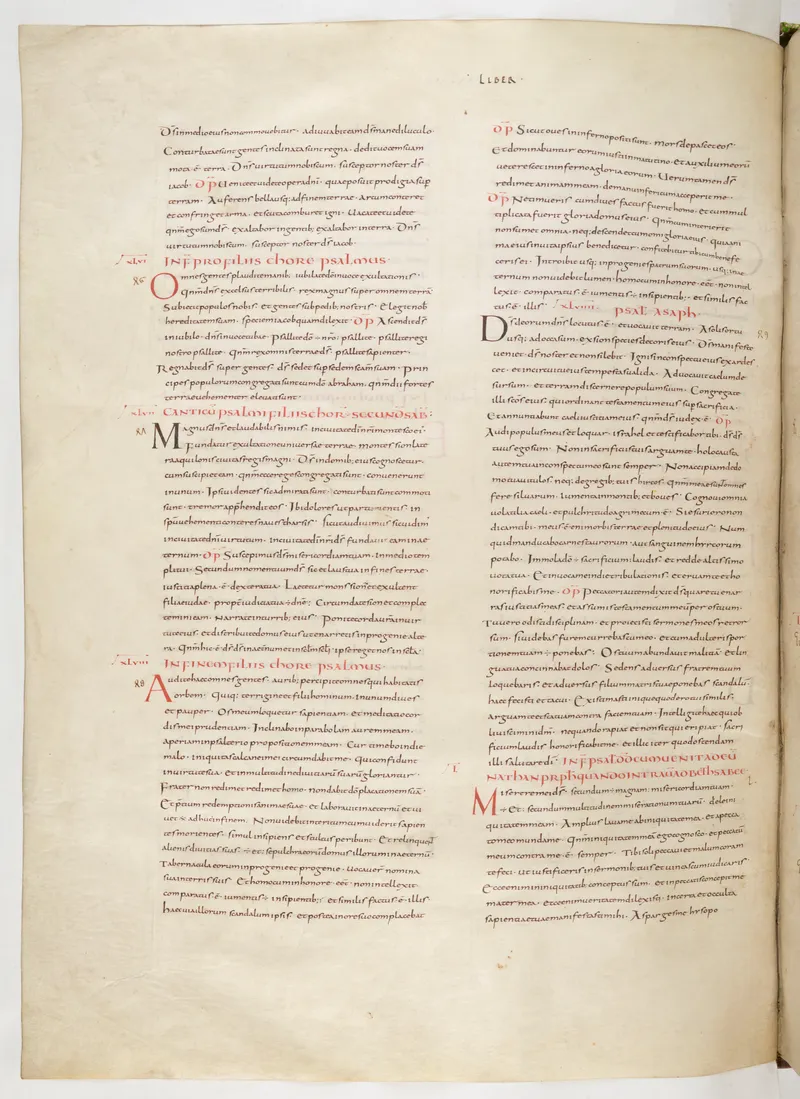 LIBER
Dsinmedioeiusnoncommovebitur· adiuvabiteamdsmanediluculo·
Conturbataesuntgentes inclinatasuntregna· deditvocemsuam
mota·ē· terra· Dnsvirtutumnobiscum· susceptornosterds
iacob· Venitetvideteoperadni· quaeposuitprodigiasup
terram· Auferensbellausq;adfinemterrae· Arcumconteret
etconfringetarma· etscutacomburetigni· Vacateetvidete
qnmegosumds· exaltaboringentib; exaltaborinterra· Dns
virtutumnobiscum· susceptor nosterdsiacob·
xlvi INF PROFILIIS CHORE PSALMUS·
Omnesgentesplauditemanib; iubilatedeoinvoceexultationis·
Qnmdnsexcelsusterribilis· rexmagnussuperomnemterrā·
Subiecitpopulosnobis· etgentessubpedib;nostris· Elegitnob
hereditatemsuam· speciemiacobquamdilexit· Ascenditds
iniubilo· dnsinvocetubae· Psallitedō nrō· psallite· psalliteregi
nostropsallite· Qnmrexomnisterraeds· psallitesapienter·
Regnabitds super gentes· ds sedetsupsedemscamsuam· Prin
cipespopulorumcongregatisuntcumdō abraham· qnmdiifortes
terraevehementer elevatisunt·
xlvii CANTICŪ PSALMI FILIIS CHORE SECUNDA SABB·
Magnusdnsetlaudabilisnimis· incivitatedinrīinmontescōei·
Fundaturexultationeuniversaeterrae· montessionlate
raaquiloniscivitasregismagni· Dsindomib;eiuscognoscetur·
cumsuscipieteam· qnmeccéregescongregatisunt· convenerunt
inunum· Ipsividentessicadmiratisunt· conturbatisuntcommoti
sunt· tremorapphenditeos· Ibidoloresutparturientis· in
spūvehementiconteresnavestharsis· Sicutaudivimussicvidim
incivitatednīvirtutum· incivitatedīnrī ds fundaviteaminae
ternum· Suscepimusdsmisericordiamtuam· inmediotem
plitui· Secundumnomentuumds· sicetlaustuainfinesterrae·
iustitiaplena·ē·dexteratua· Laeteturmonssionetexultent
filiaeiudae· propteriudiciatuadne· Circumdatesionetcomplec
timinieam· Narrateinturrib;eius· Ponitecordavestrainvir
tuteeius· etdistribuitedomuseiusutenarretisinprogeniealte
ra· Qnmhic·ē·ds dsnrinaeternūetinsclmscli; ipseregetnosinscla·
xlviii INFINEM FILIIS CHORE PSALMUS·
Auditehaecomnesgentes· aurib;percipiteomnesquihabitatis
orbem· Quiq; terrigenaeetfiliihominum· inunumdives
etpauper· Osmeumloqueturapientiam· etmeditatiocor
dismeiprudentiam· Inclinaboinparabolamauremmeam·
aperiaminpsalteriopropositionemmeam· Curtimeboindie
malo· iniquitascalcaneimeicircumdabitme· Quiconfidunt
invirtutesua· etinmultitudinedivitiarūsuarūgloriantur·
Fraternonredimetredimethomo· nondabitdoplacationemsuā·
Etpraetiumredemptionisanimaesuae· etlaboravitinaeternūetvi
vet adhucinfinem· Nonvidebitinteritumcumvideritsapien
tesmorientes· simulinsipiensetstultusperibunt· Etrelinquent
alienisdivitiassuas etsepulchraeorūdomusillorūinaeternū·
Tabernaculaeoruminprogenieetprogenie· vocaver nomina
suainterrissuis· Ethomocuminhonore· eēt· nonintellexit·
comparatus·ē·iumentis insipientib;· etsimilisfactus·ē·illis·
haecviaillorum scandalumipsis· etposteainoresuocomplacebūt
Sicutovesininfernopositisunt· morsdepascetεos·
Etdominabuntureorumiustiinmatutino· etauxiliumeorū
veterescetininfernoagloriaeorum· Verumtamends
redimetanimammeam· demanuinfernicumacceperitme·
Netimueris cumdivesfactusfuerithomo· etcummul
tiplicatafueritgloriadomuseius· Qnmcuminterierit
nonsumetomnia· neq;descendetcumeogloriaeius· quiaani
maeiusinvitaipsius benedicetur· confitebiturtibicumbenefe
cerisei· Introibitusq;inprogeniespatrumsuorum· usq;inae
ternumnonvidebitlumen· homocuminhonore·eēt·nonintel
lexit· comparatus·ē·iumentis insipientib;· etsimilisfac
tus·ē·illis· xlviiii PSAL ASAPH·
Dsdeorumdnslocutus·ē· etvocavitterram· Asolisortu
usq;adoccasum· exsionspeciesdecoriseius· Dsmanifeste
veniet· dsnosteretnonsilebit· Ignisinconspectueiusexardes
cet· etincircuitueiustempestasvalida· Advocavitcaelumde
sursum· etterramdiscernerepopulumsuum· Congregate
illisctōseius· quiordinanttestamentumeiussupsacrificia·
Etannuntiabuntcaeliiustitiameius· qnmdsiudex·ē·
Audipopulusmeusetloquar· israheletestificabortibi· dsds
tuusegosum· Noninsacrificiistuisarguamte· holocausta
autemtuainconspectumeosunt semper· Nonaccipiamdedo
motuavitulos· neq;degregib;tuis hircos· Qnmmeaesuntomnes
feraesilvarum· iumentainmontib;etboves· Cognoviomnia
volatiliacaeli· etpulchritudoagrimecum·ē· Siesurieronon
dicamtibi· meus·ē·enimorbisterraeetplenitudoeius· Num
quidmanducabocarnestaurorum· autsanguinemhyrcorum
potabo· Immoladō sacrificiumlaudis· etreddealtissimo
votatua· Etinvocameindietribulationis· eteruamteetho
norificabisme· Peccatoriautemdixitdsquaretuenar
rasiustitiasmeas· etassumistestamentummeumperostuum·
Tuverōodistidisciplinam· etproiecistisermonesmeosretror
sum· sividebasfuremcurrebascumeo· etcumadulterispor
tionemtuam ponebas· Ostuumabundavitmalitiā· etlin
guatuaconcinnabatdolos· Sedensadversusfratremtuum
loquebaris· etadversusfiliummatristuaeponebasscandalū·
haecfecistiettacui· Existimastiiniquequoderotuisimilis·
Arguamteetstatuamcontrafaciemtuam· Intelligitehaecquiob
liviscimindm· nequandorapiatetnonsitquieripiat· sacri
ficiumlaudis honorificabitme· etillicíterquoostendam
illisalutaredī· IN F PSAL DD CUM VENIT AD EŪ
L NATHAN PRPH QUANDO INTRAVIT AD BETHSABEE
Misereremeids secundummagnam misericordiamtuam·
Et secundummultitudinemmiserationumtuarū· deleini
quitatemmeam· Ampliuslavameabiniquitatemea· etapecca
tomeomundame· Qnminiquitatemmeāegocognosco· etpeccatū
meumcontrame·ē·semper· Tibisolipeccavietmalumcoram
tefeci· utiustificerisinsermonib;tuis etvincascumiudicaris·
Ecceeniminiquitatib;conceptussum· etinpeccatisconcepitme
matermea· Ecceenimveritatemdilexisti· incertaetocculta
sapientiaetuaemanifestastimihi· Asparges mehysopo